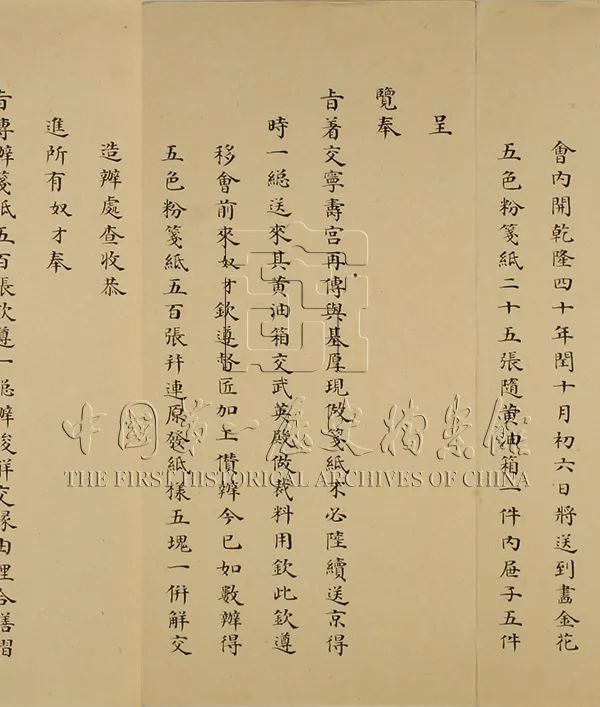 會內開乾隆四十年閏十月初六日將送到畫金花
五色粉箋紙二十五張隨黃油箱一件內屜子五件
呈
覽奉
旨着交寧壽宮再傳與基厚現做箋紙不必陸續送京得
時一緫送來其黃油箱交武英殿做裁料用欽此欽遵
移會前來奴才欽遵督匠加工儹辦今已如數辦得
五色粉箋紙五百張幷連原發紙樣五塊一併解交
造辦處查收恭
進所有奴才奉
旨傳辦箋紙五百張欽遵一緫辦竣解交緣由理合繕摺
中國第一歷史檔案館
THE FIRST HISTORICAL ARCHIVES OF CHINA